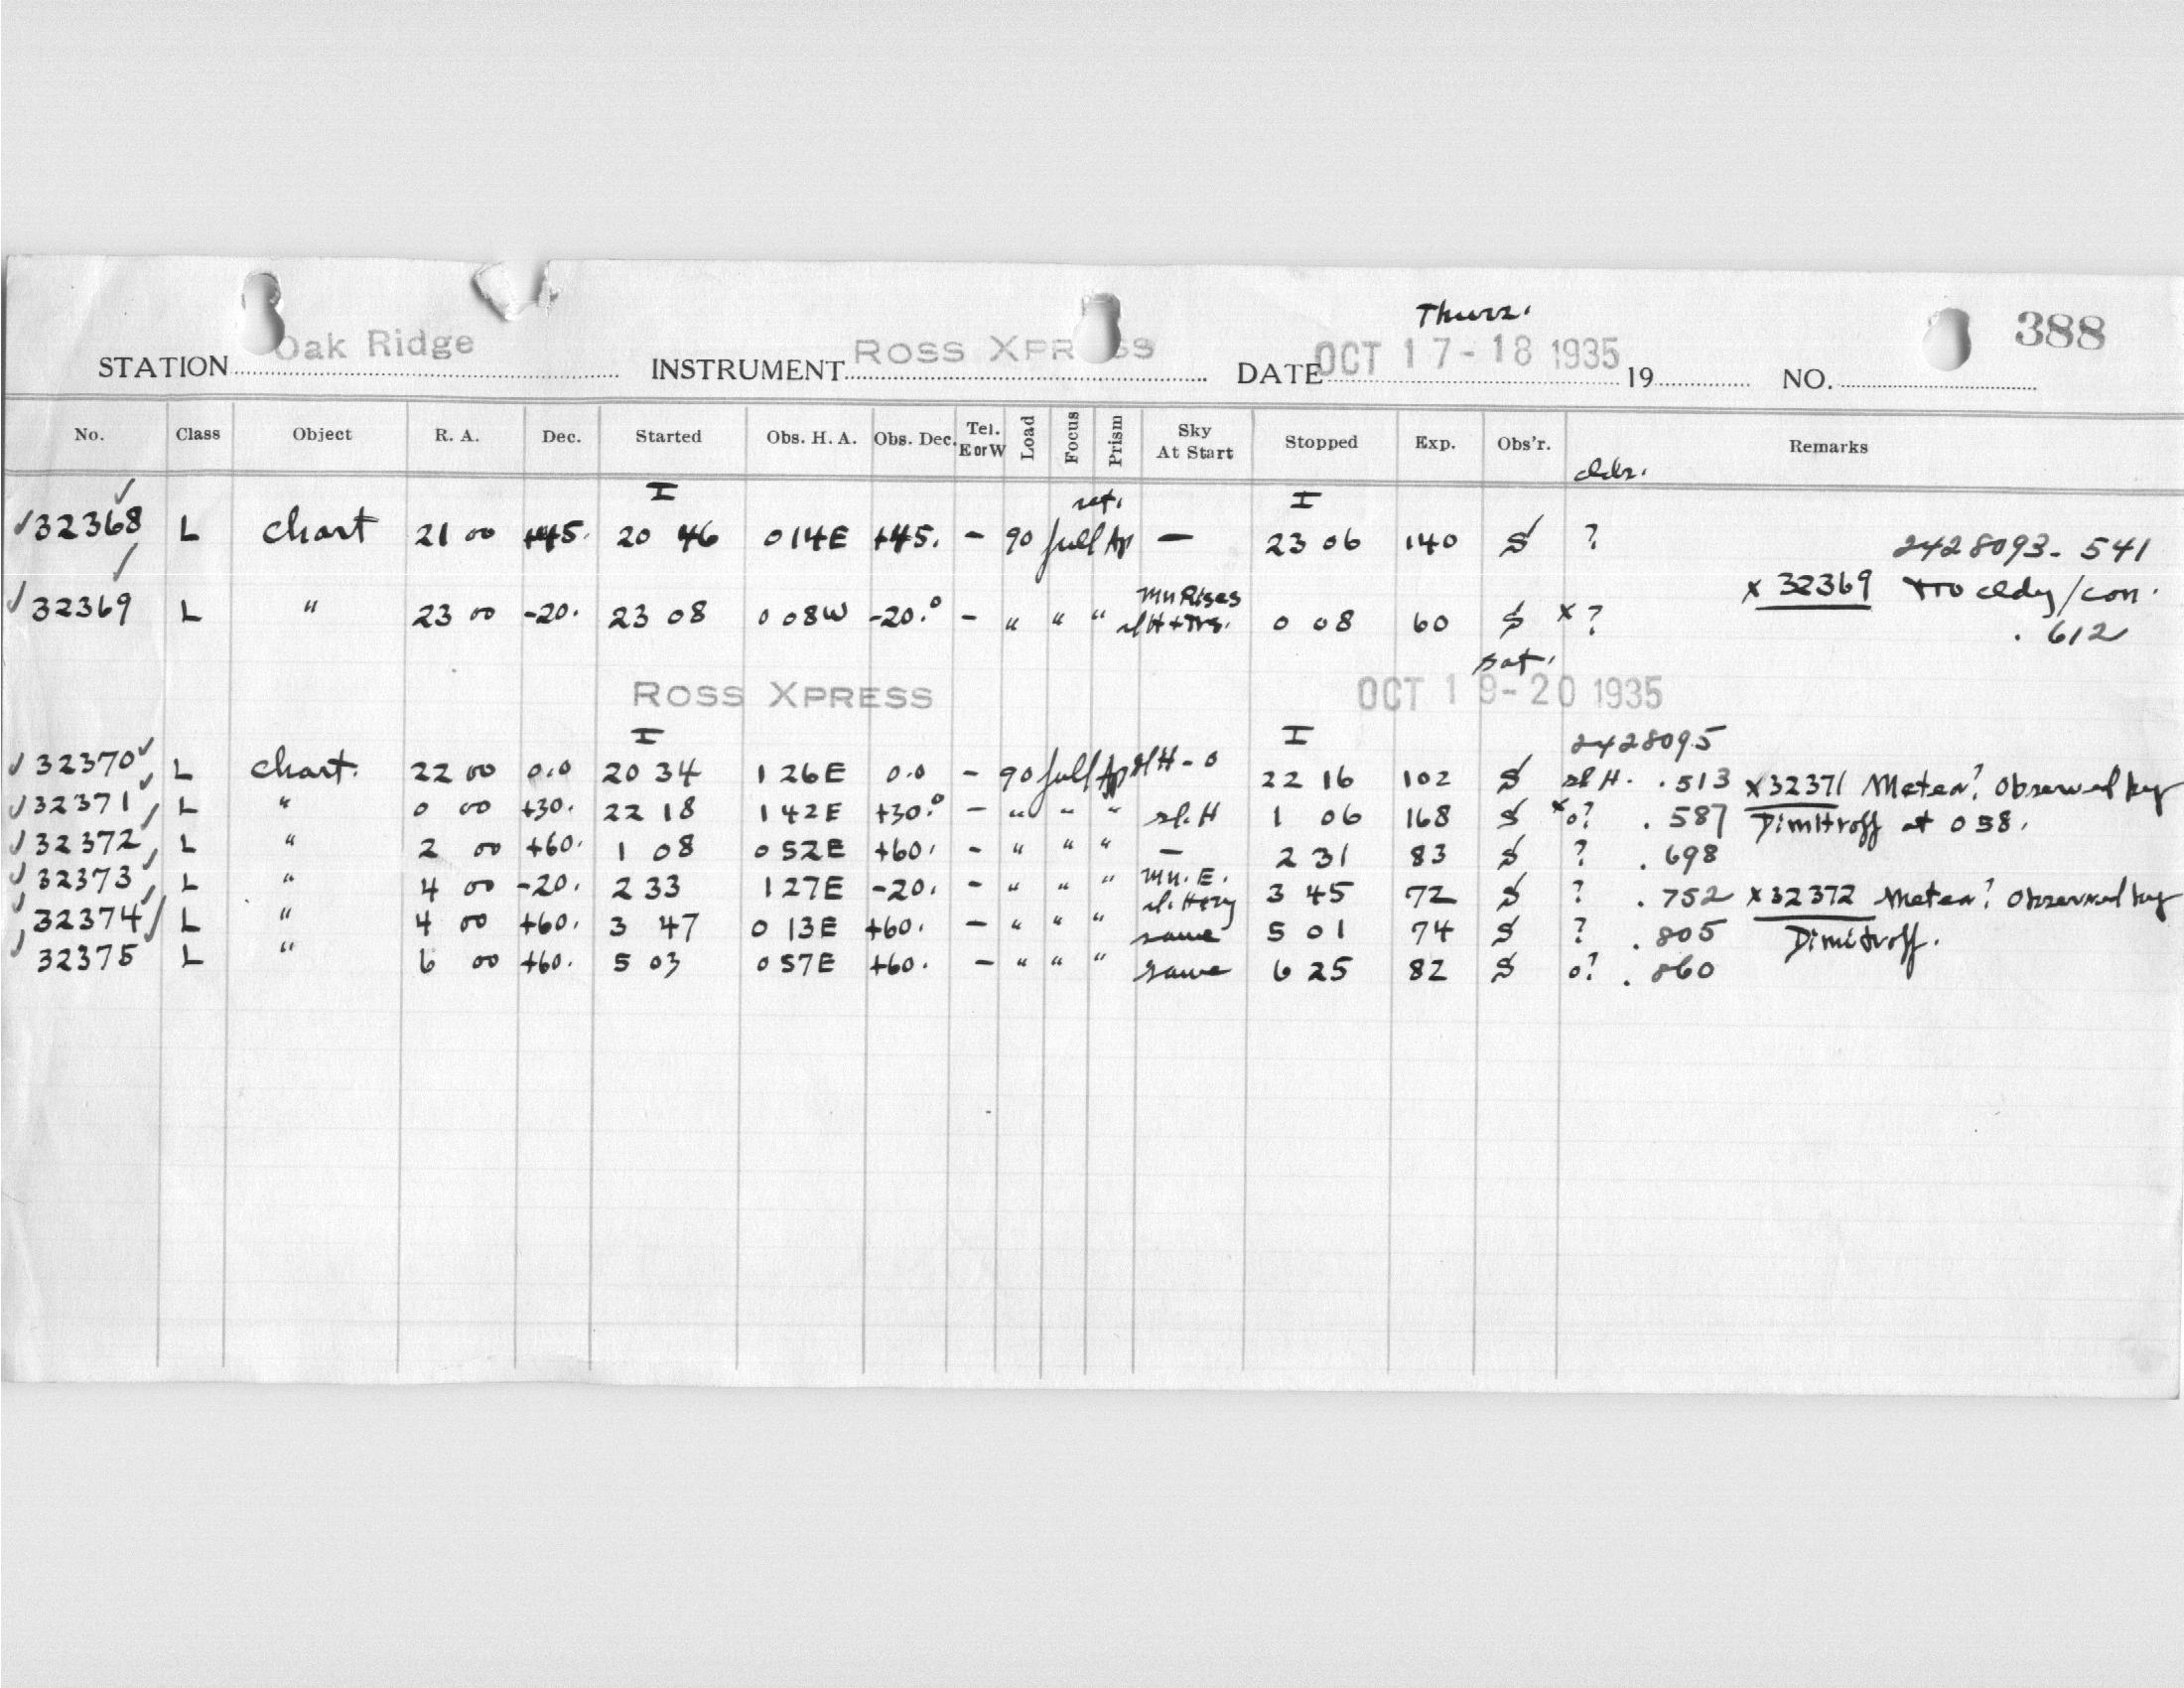 Thurs.
STATION Oak Ridge INSTRUMENT ROSS XPRESS DATE OCT 17-18 1935 19 NO. 388
No. Class Object R. A. Dec. Started Obs. H. A. Obs. Dec. Tel. E or W Load Focus Prism Sky At Start Stopped Exp. Obs'r. Remarks
I I
32368 L chart 21 00 +45. 20 46 0 14E +45. - 90 full Ap — 23 06 140 S ? 2428093. 541
Mn Rises x 32369 cldy/con.
32369 L " 23 00 -20. 23 08 0 08W -20.° - " " " sl H + 0 08 60 S x ? . 612
Sat.
ROSS XPRESS OCT 19-20 1935
I I 2428095
32370 L chart. 22 00 0.0 20 34 1 26E 0.0 - 90 full Ap sl H - 0 22 16 102 S sl H. .513 x32371 Meteor? Observed by
32371 L " 0 00 +30. 22 18 1 42E +30.° - " " " sl. H 1 06 168 S x o? .587 Dimitroff at 0 58.
32372 L " 2 00 +60. 1 08 0 52E +60. - " " " — 2 31 83 S ? .698
Mn. E.
32373 L " 4 00 -20. 2 33 1 27E -20. - " " " sl. Hzy 3 45 72 S ? .752 x32372 Meteor? Observed by
32374 L " 4 00 +60. 3 47 0 13E +60. - " " " same 5 01 74 S ? .805 Dimitroff.
32375 L " 6 00 +60. 5 03 0 57E +60. - " " " same 6 25 82 S o? .860